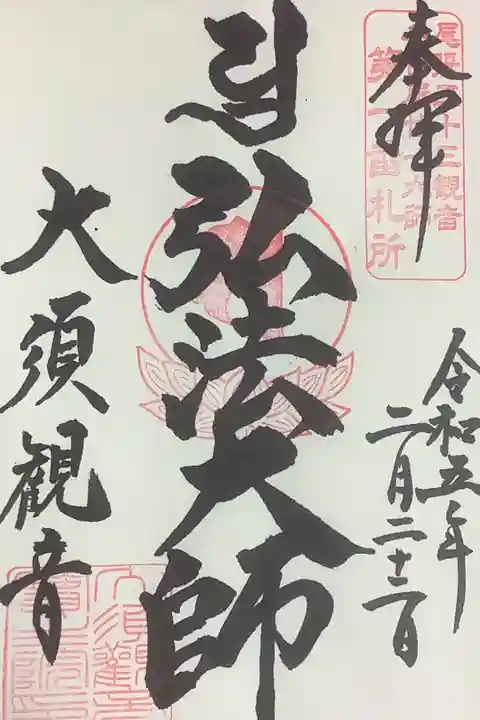 奉拝
尾張三十三観音
第一番札所
令和五年
二月二十二日
弘法大師
大須観音